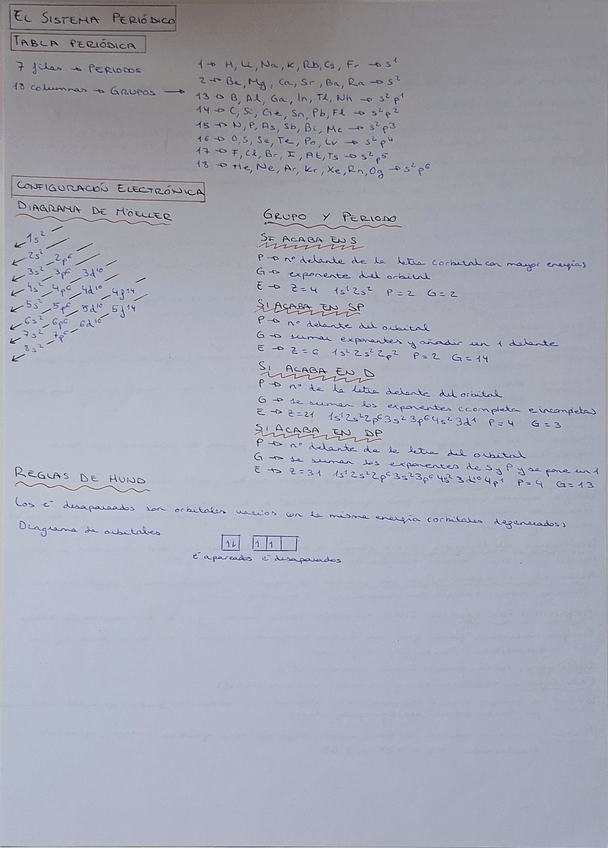 EL SISTEMA PERIÓDICO
TABLA PERIÓDICA
7 filas → PERIODOS
18 columnas → GRUPOS →
1 → H, Li, Na, K, Rb, Cs, Fr → s¹
2 → Be, Mg, Ca, Sr, Ba, Ra → s²
13 → B, Al, Ga, In, Tl, Nh → s²p¹
14 → C, Si, Ge, Sn, Pb, Fl → s²p²
15 → N, P, As, Sb, Bi, Mc → s²p³
16 → O, S, Se, Te, Po, Lv → s²p⁴
17 → F, Cl, Br, I, At, Ts → s²p⁵
18 → He, Ne, Ar, Kr, Xe, Rn, Og → s²p⁶
CONFIGURACIÓN ELECTRÓNICA
DIAGRAMA DE MÖELLER
1s²
2s² 2p⁶
3s² 3p⁶ 3d¹⁰
4s² 4p⁶ 4d¹⁰ 4f¹⁴
5s² 5p⁶ 5d¹⁰ 5f¹⁴
6s² 6p⁶ 6d¹⁰
7s² 7p⁶
8s²
GRUPO Y PERIODO
SI ACABA EN S
P → nº delante de la letra (orbital con mayor energía)
G → exponente del orbital
E → Z=4 1s² 2s² P=2 G=2
SI ACABA EN SP
P → nº delante del orbital
G → sumar exponentes y añadir un 1 delante
E → Z=6 1s² 2s² 2p² P=2 G=14
SI ACABA EN D
P → nº de la letra delante del orbital
G → se suman los exponentes (completa e incompleta)
E → Z=21 1s² 2s² 2p⁶ 3s² 3p⁶ 4s² 3d¹ P=4 G=3
SI ACABA EN DP
P → nº delante de la letra del orbital
G → se suman los exponentes de S y P y se pone un 1
E → Z=31 1s² 2s² 2p⁶ 3s² 3p⁶ 4s² 3d¹⁰ 4p¹ P=4 G=13
REGLAS DE HUND
Los e⁻ desapareados son orbitales vacíos con la misma energía (orbitales degenerados)
Diagrama de orbitales
↑↓ ↑ ↑
e⁻ apareados e⁻ desapareados